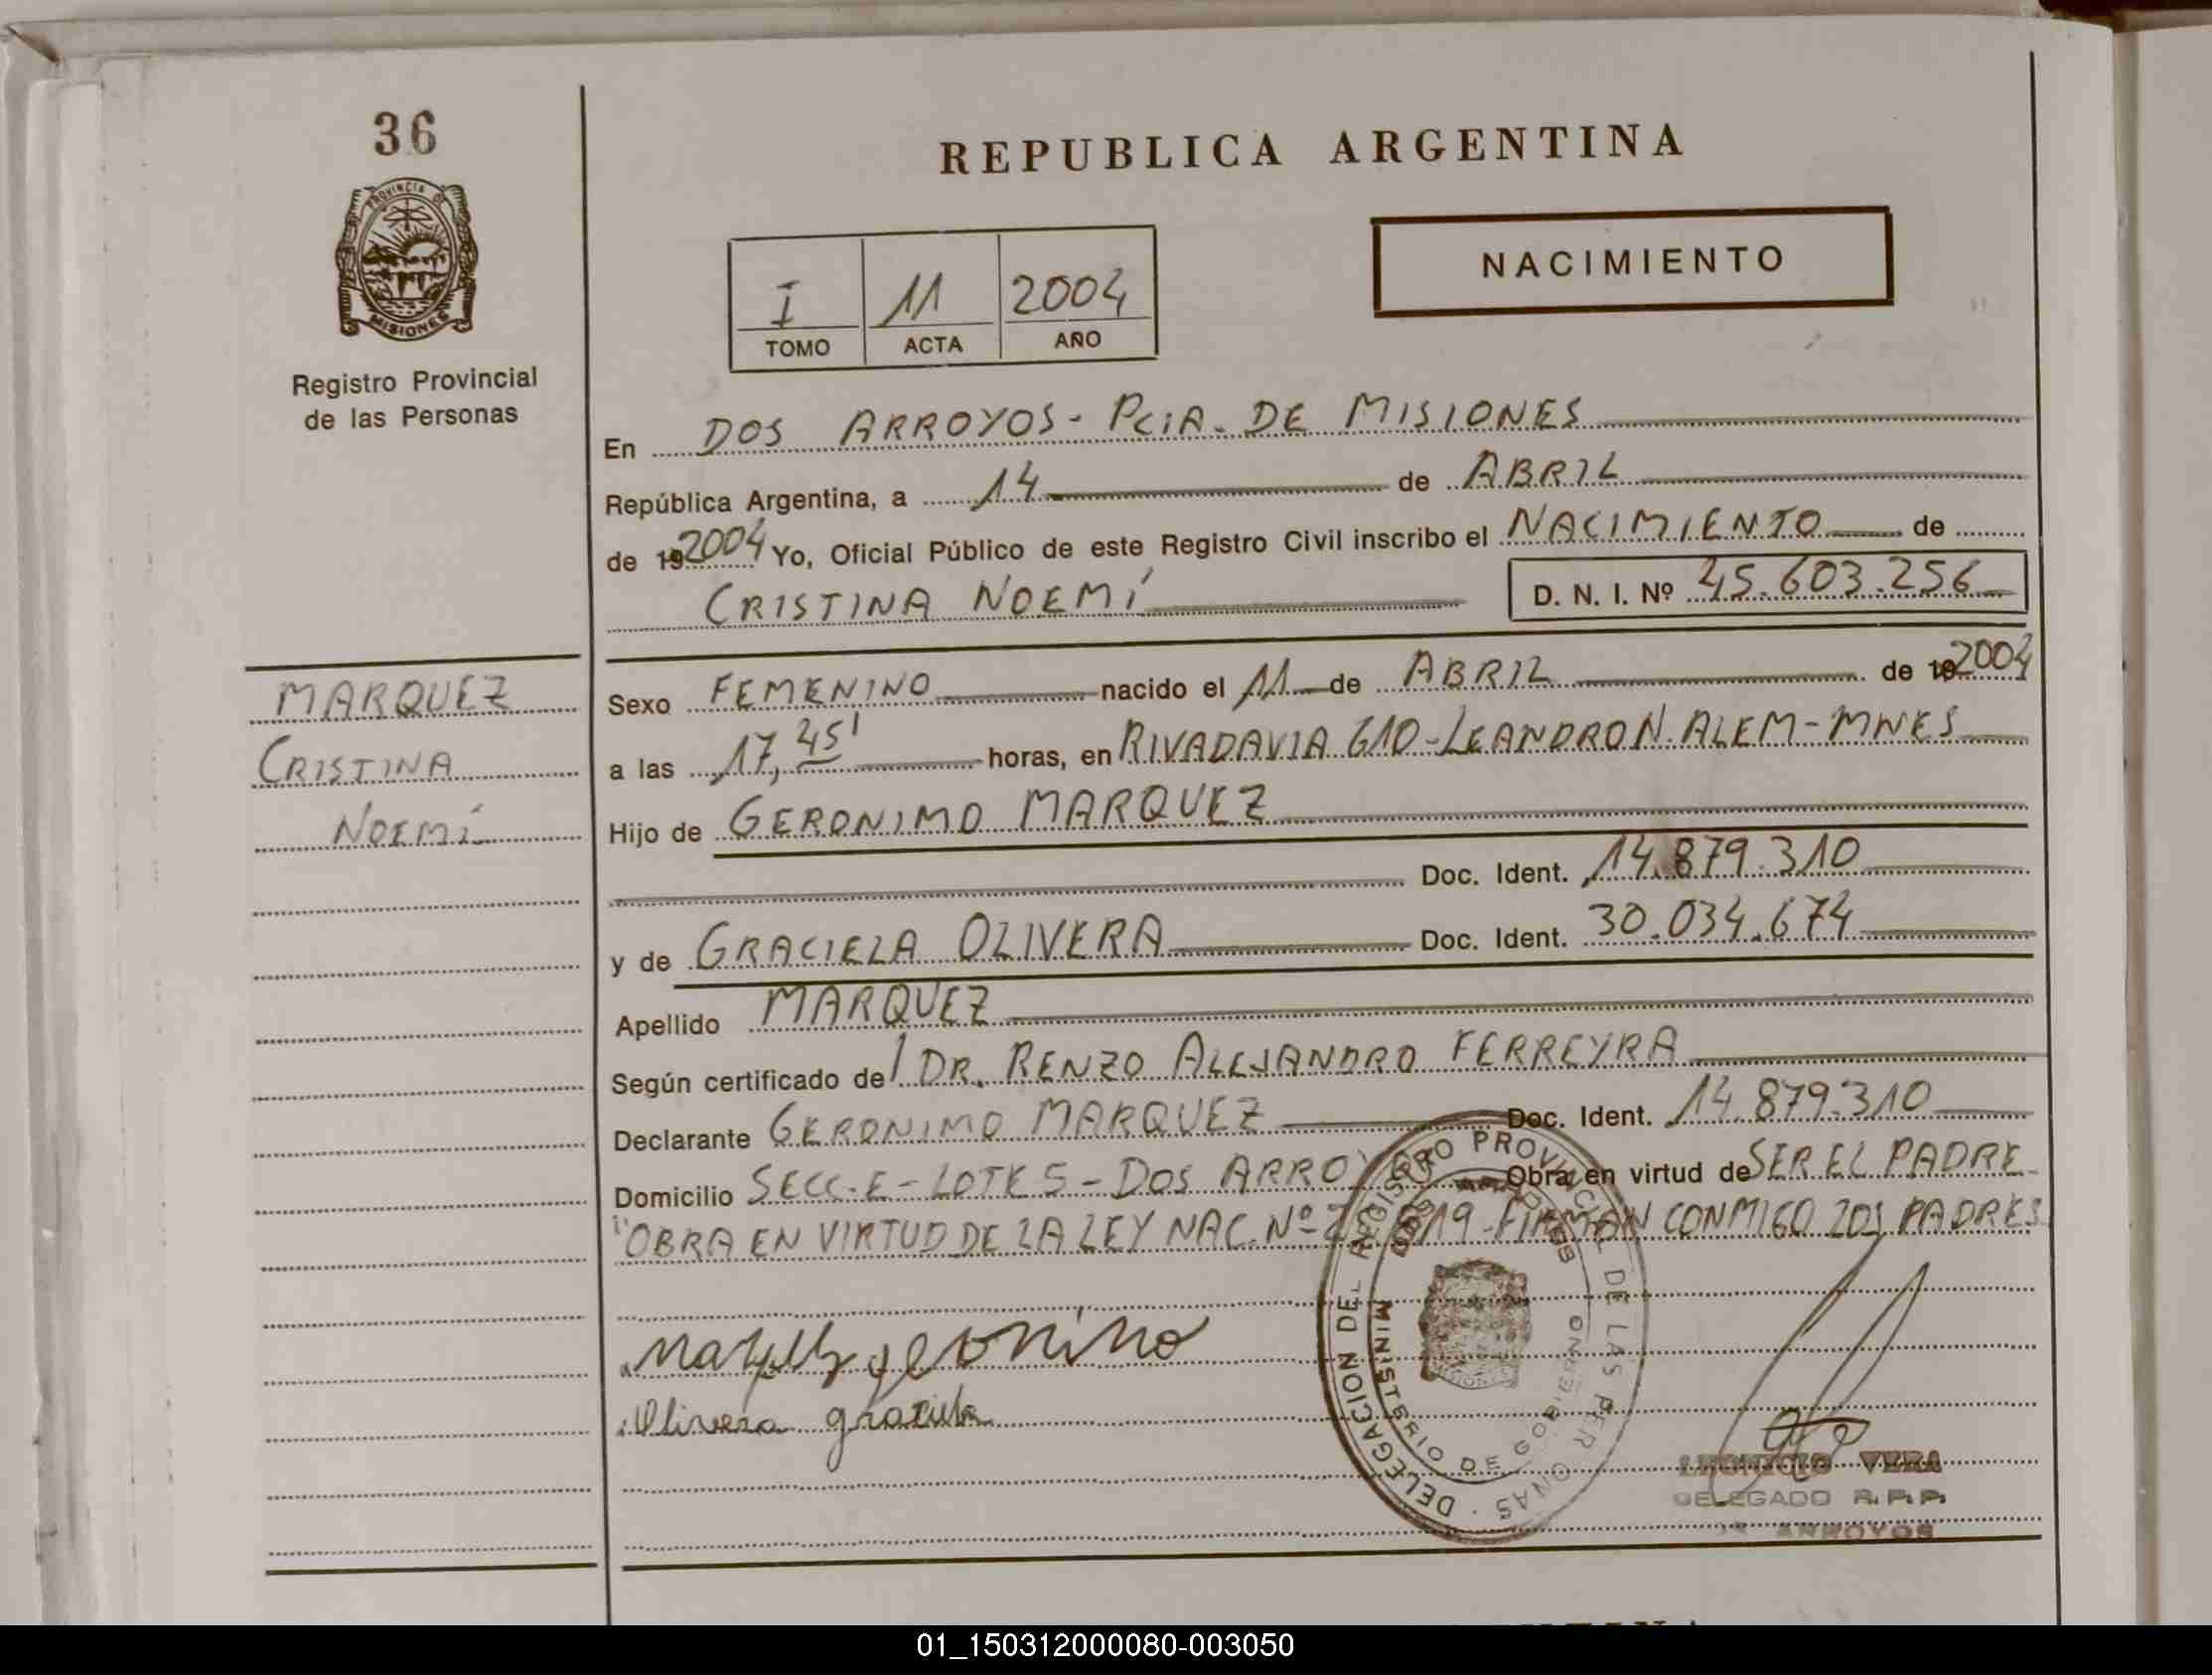 36
REPUBLICA ARGENTINA
PROVINCIA DE
MISIONES
Registro Provincial
de las Personas
NACIMIENTO
I 11 2004
TOMO ACTA AÑO
En DOS ARROYOS - PCIA. DE MISIONES
República Argentina, a 14 de ABRIL
de 19 2004 Yo, Oficial Público de este Registro Civil inscribo el NACIMIENTO de
CRISTINA NOEMÍ D. N. I. Nº 45.603.256
MARQUEZ
CRISTINA
NOEMÍ
Sexo FEMENINO nacido el 11 de ABRIL de 19 2004
a las 17,45' horas, en RIVADAVIA 610 - LEANDRO N. ALEM - MNES
Hijo de GERONIMO MARQUEZ
Doc. Ident. 14.879.310
y de GRACIELA OLIVERA Doc. Ident. 30.034.674
Apellido MARQUEZ
Según certificado de DR. RENZO ALEJANDRO FERREYRA
Declarante GERONIMO MARQUEZ Doc. Ident. 14.879.310
Domicilio SECC. E - LOTE 5 - DOS ARROYOS Obra en virtud de SER EL PADRE
"OBRA EN VIRTUD DE LA LEY NAC. Nº FIRMAN CONMIGO LOS PADRES
Marquez geronimo
Olivera graciela
DELEGACION DEL REGISTRO PROVINCIAL DE LAS PERSONAS
DOS ARROYOS
MINISTERIO DE GOBIERNO
VERA
DELEGADO R.P.P.
ARROYOS
01_150312000080-003050